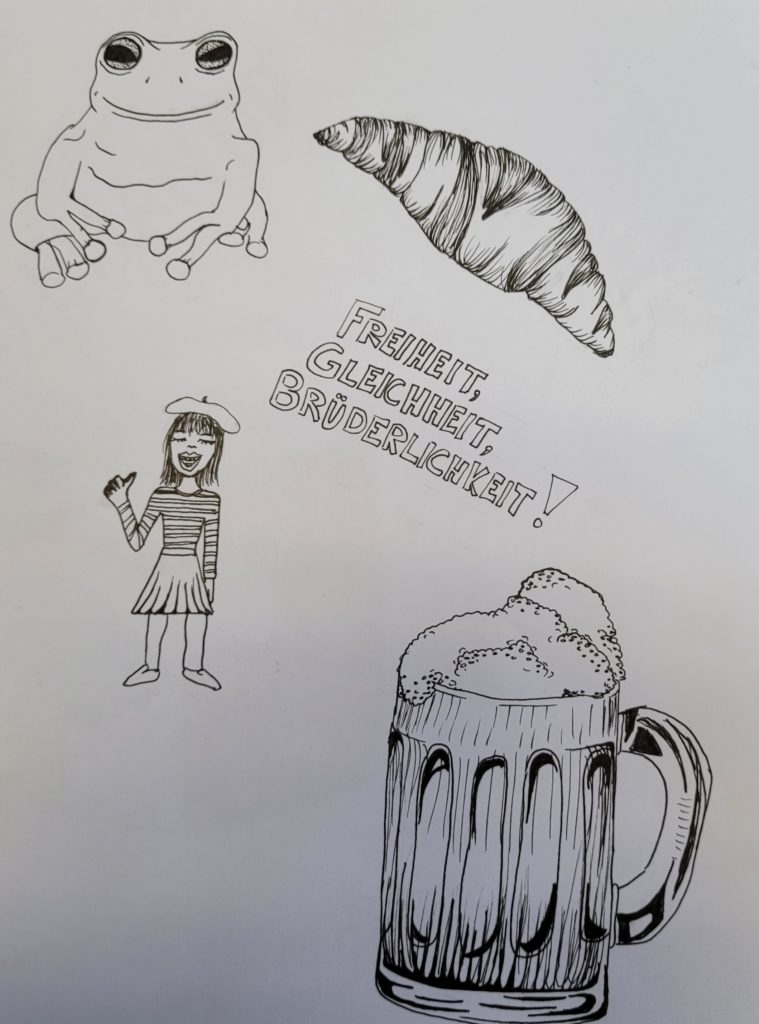 FREIHEIT,
GLEICHHEIT,
BRÜDERLICHKEIT!